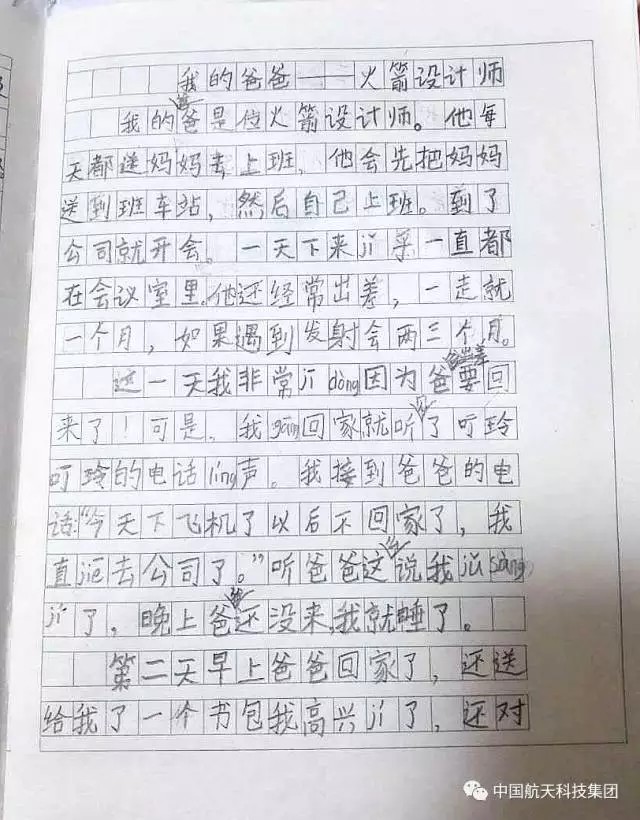 我的爸爸——火箭设计师
我的爸爸是位火箭设计师。他每
天都送妈妈去上班,他会先把妈妈
送到班车站,然后自己上班。到了
公司就开会。一天下来jī乎一直都
在会议室里。他还经常出差,一走就
一个月,如果遇到发射会两三个月。
这一天我非常jī dòng因为爸爸出差要回
来了!可是,我gāng回家就听见了叮玲
叮玲的电话líng声。我接到爸爸的电
话:“今天下飞机了以后不回家了,我
直jiē去公司了。”听爸爸这么说我jǔ sàng
jí了,晚上爸爸还没来,我就睡了。
第二天早上爸爸回家了,还送
给我了一个书包我高兴jí了,还对
中国航天科技集团